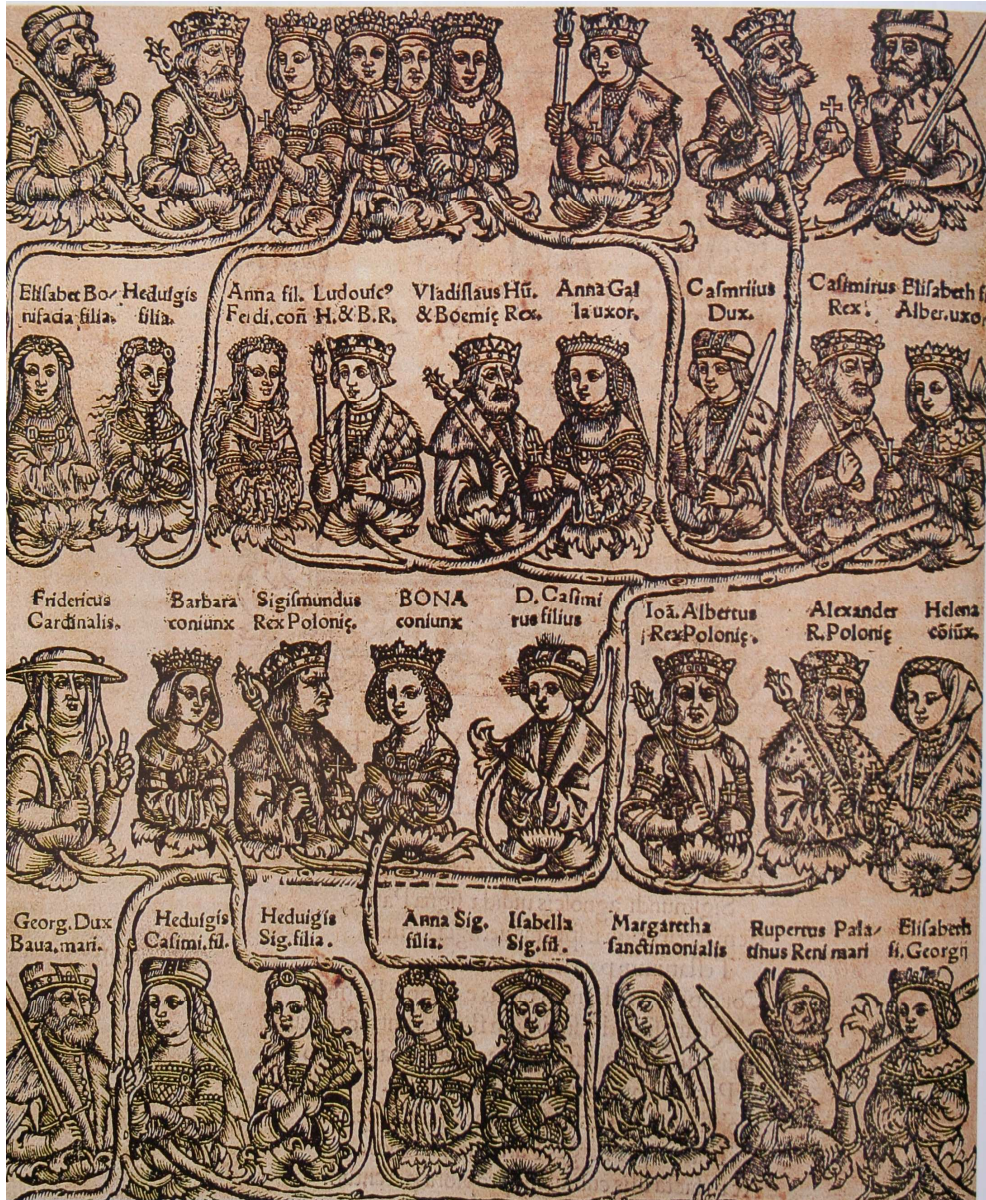 Elisabet Bo-
nifacia filia.
Heduigis
filia.
Anna fil.
Ferdi. coñ
Ludouic⁹
H. & B. R.
Vladislaus Hũ.
& Boemię Rex.
Anna Gal
la uxor.
Casmriius
Dux.
Casimirus
Rex.
Elisabeth f
Alber. uxo
Fridericus
Cardinalis.
Barbara
coniunx
Sigismundus
Rex Polonię.
BONA
coniunx
D. Casimi
rus filius
Ioã. Albertus
Rex Polonię.
Alexander
R. Polonię
Helena
cõiũx.
Georg. Dux
Baua. mari.
Heduigis
Casimi. fil.
Heduigis
Sig. filia.
Anna Sig.
filia.
Isabella
Sig. fil.
Margaretha
sanctimonialis
Rupertus Pala-
tinus Reni mari
Elisabeth
fi. Georgij